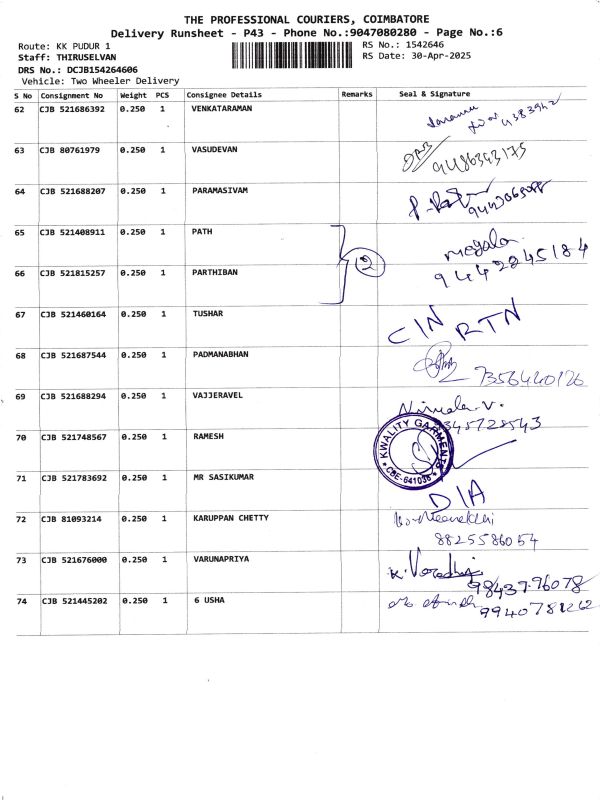 THE PROFESSIONAL COURIERS, COIMBATORE
Delivery Runsheet - P43 - Phone No.:9047080280 - Page No.:6
Route: KK PUDUR 1 RS No.: 1542646
Staff: THIRUSELVAN RS Date: 30-Apr-2025
DRS No.: DCJB154264606
Vehicle: Two Wheeler Delivery
S No Consignment No Weight PCS Consignee Details Remarks Seal & Signature
62 CJB 521686392 0.250 1 VENKATARAMAN
63 CJB 80761979 0.250 1 VASUDEVAN
9486343175
64 CJB 521688207 0.250 1 PARAMASIVAM
65 CJB 521408911 0.250 1 PATH
megala
2
9442245184
66 CJB 521815257 0.250 1 PARTHIBAN
67 CJB 521460164 0.250 1 TUSHAR
CIN RTN
68 CJB 521687544 0.250 1 PADMANABHAN
7356440126
69 CJB 521688294 0.250 1 VAJJERAVEL
Nirmala V.
70 CJB 521748567 0.250 1 RAMESH
KWALITY GARMENTS
CBE-641038
71 CJB 521783692 0.250 1 MR SASIKUMAR
D/A
72 CJB 81093214 0.250 1 KARUPPAN CHETTY
8825586054
73 CJB 521676000 0.250 1 VARUNAPRIYA
9843796078
74 CJB 521445202 0.250 1 6 USHA